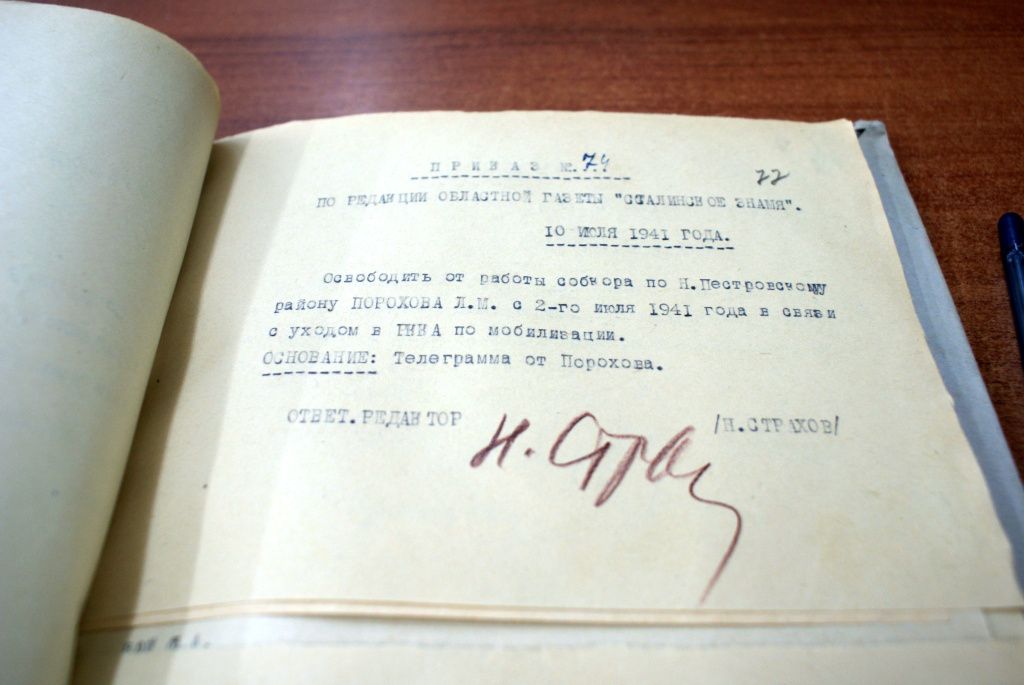 ПРИКАЗ №.74
22
ПО РЕДАКЦИИ ОБЛАСТНОЙ ГАЗЕТЫ "СТАЛИНСКОЕ ЗНАМЯ".
10 ИЮЛЯ 1941 ГОДА.
Освободить от работы собкора по Н.Пестровскому
району ПОРОХОВА Л.М. с 2-го июля 1941 года в связи
с уходом в РККА по мобилизации.
ОСНОВАНИЕ: Телеграмма от Порохова.
ОТВЕТ.РЕДАКТОР Н. Стра /Н.СТРАХОВ/